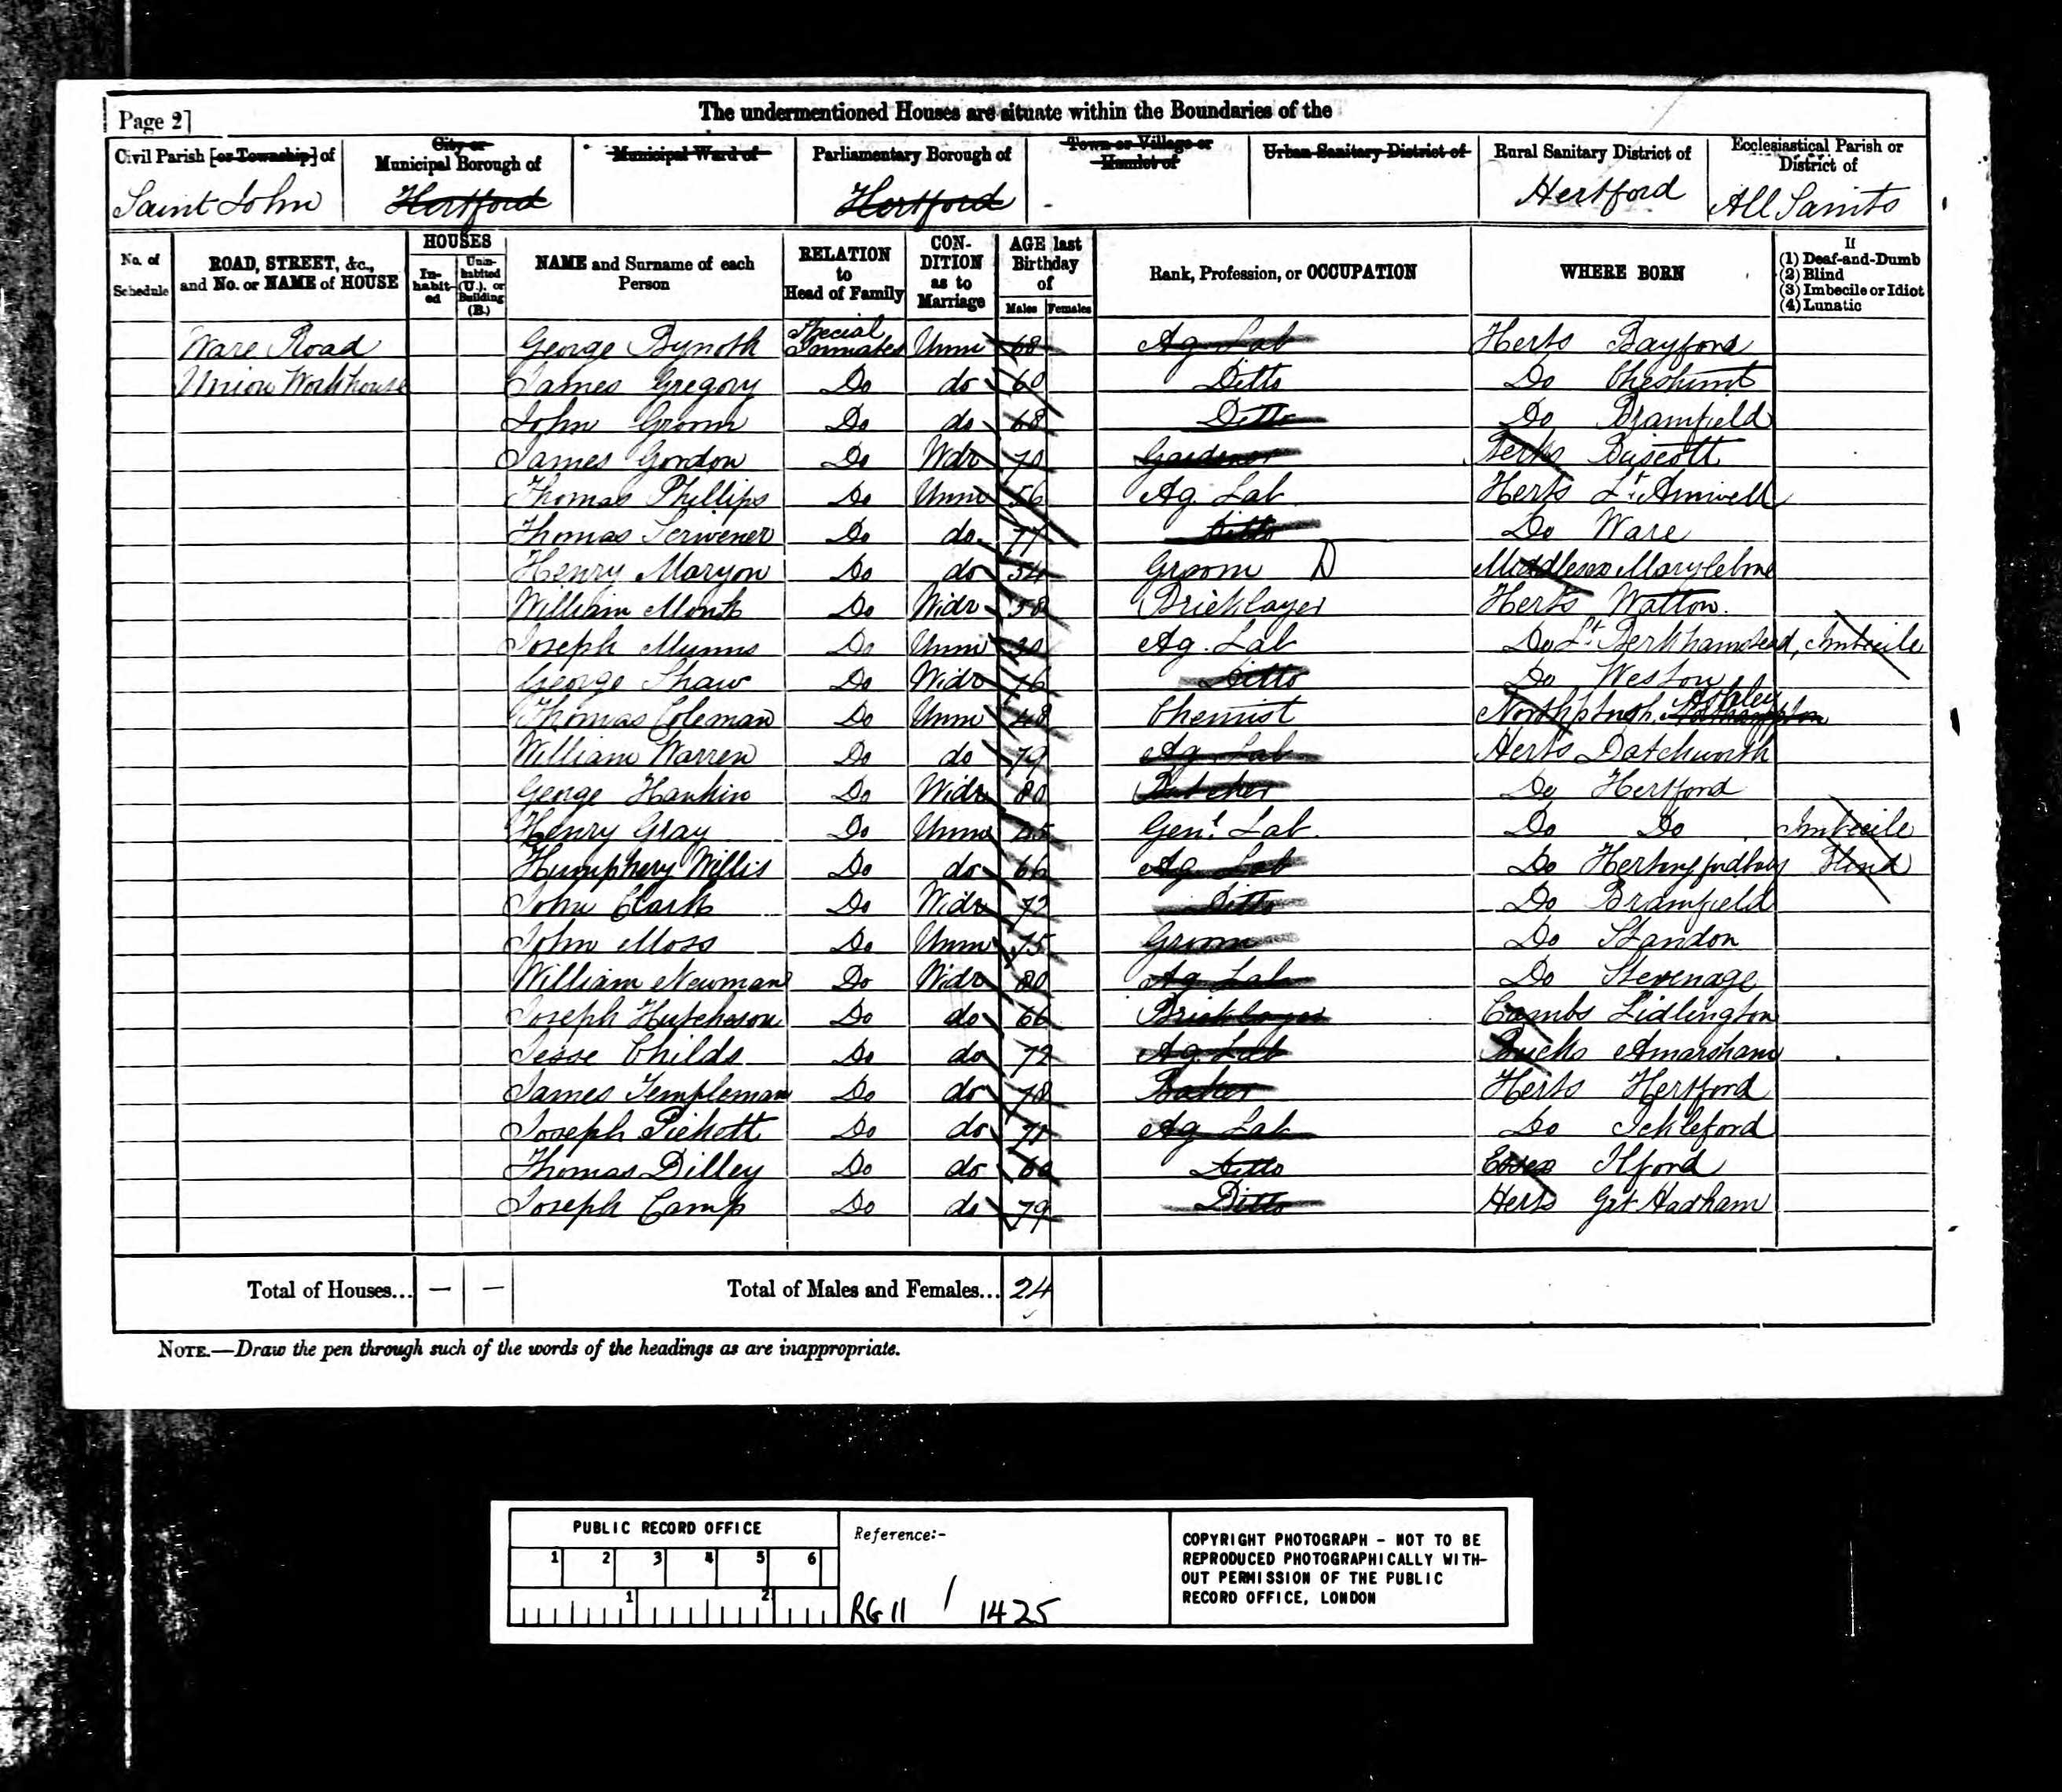 Page 2]
The undermentioned Houses are situate within the Boundaries of the
Civil Parish [or Township] of
City or Municipal Borough of
Municipal Ward of
Parliamentary Borough of
Town or Village or Hamlet of
Urban Sanitary District of
Rural Sanitary District of
Ecclesiastical Parish or District of
Saint John Hertford Hertford Hertford All Saints
No. of Schedule
ROAD, STREET, &c., and No. or NAME of HOUSE
HOUSES
In-habit-ed
Unin-habited (U.), or Building (B.)
NAME and Surname of each Person
RELATION to Head of Family
CON-DITION as to Marriage
AGE last Birthday of
Males Females
Rank, Profession, or OCCUPATION
WHERE BORN
If
(1) Deaf-and-Dumb
(2) Blind
(3) Imbecile or Idiot
(4) Lunatic
Ware Road George Bynoth Special Inmates Unm 68 Ag Lab Herts Bayford
Union Workhouse James Gregory Do do 60 Ditto Do Cheshunt
John Groom Do do 68 Ditto Do Bramfield
James Gordon Do Wdr 70 Gardener Berks Buscott
Thomas Phillips Do Unm 56 Ag. Lab Herts Lt. Amwell
Thomas Scrivener Do do 77 Ditto Do Ware
Henry Maryon Do do 54 Groom D Middlesex Marylebone
William Monk Do Widr 58 Bricklayer Herts Watton.
Joseph Munns Do Unm 30 Ag. Lab Do Lt. Berkhamstead, Imbecile
George Shaw Do Widr 76 Ditto Do Weston
Thomas Coleman Do Unm 48 Chemist
William Warren Do do 79 Ag Lab Herts Datchworth
George Hankin Do Widr 80 Butcher Do Hertford
Henry Gray Do Unm Genl. Lab. Do Do Imbecile
Humphery Willis Do do 66 Ag Lab Do Hertingfordbury Blind
John Clark Do Widr 72 Ditto Do Bramfield
John Moss Do Unm 75 Groom Do Standon
William Newman Do Widr 80 Ag Lab Do Stevenage
Joseph Hutcheson Do do 66 Bricklayer Cambs Lidlington
Jesse Childs Do do 72 Ag. Lab Bucks Amarsham
James Templeman Do do 78 Baker Herts Hertford
Joseph Pickett Do do 71 Ag Lab Do Ickleford
Thomas Dilley Do do 60 Ditto Essex Ilford
Joseph Camp Do do 79 Ditto Herts Grt Hadham
Total of Houses... — — Total of Males and Females... 24
NOTE.—Draw the pen through such of the words of the headings as are inappropriate.
PUBLIC RECORD OFFICE
1 2 3 4 5 6
1 2
Reference:-
RG 11 / 1425
COPYRIGHT PHOTOGRAPH - NOT TO BE
REPRODUCED PHOTOGRAPHICALLY WITH-
OUT PERMISSION OF THE PUBLIC
RECORD OFFICE, LONDON